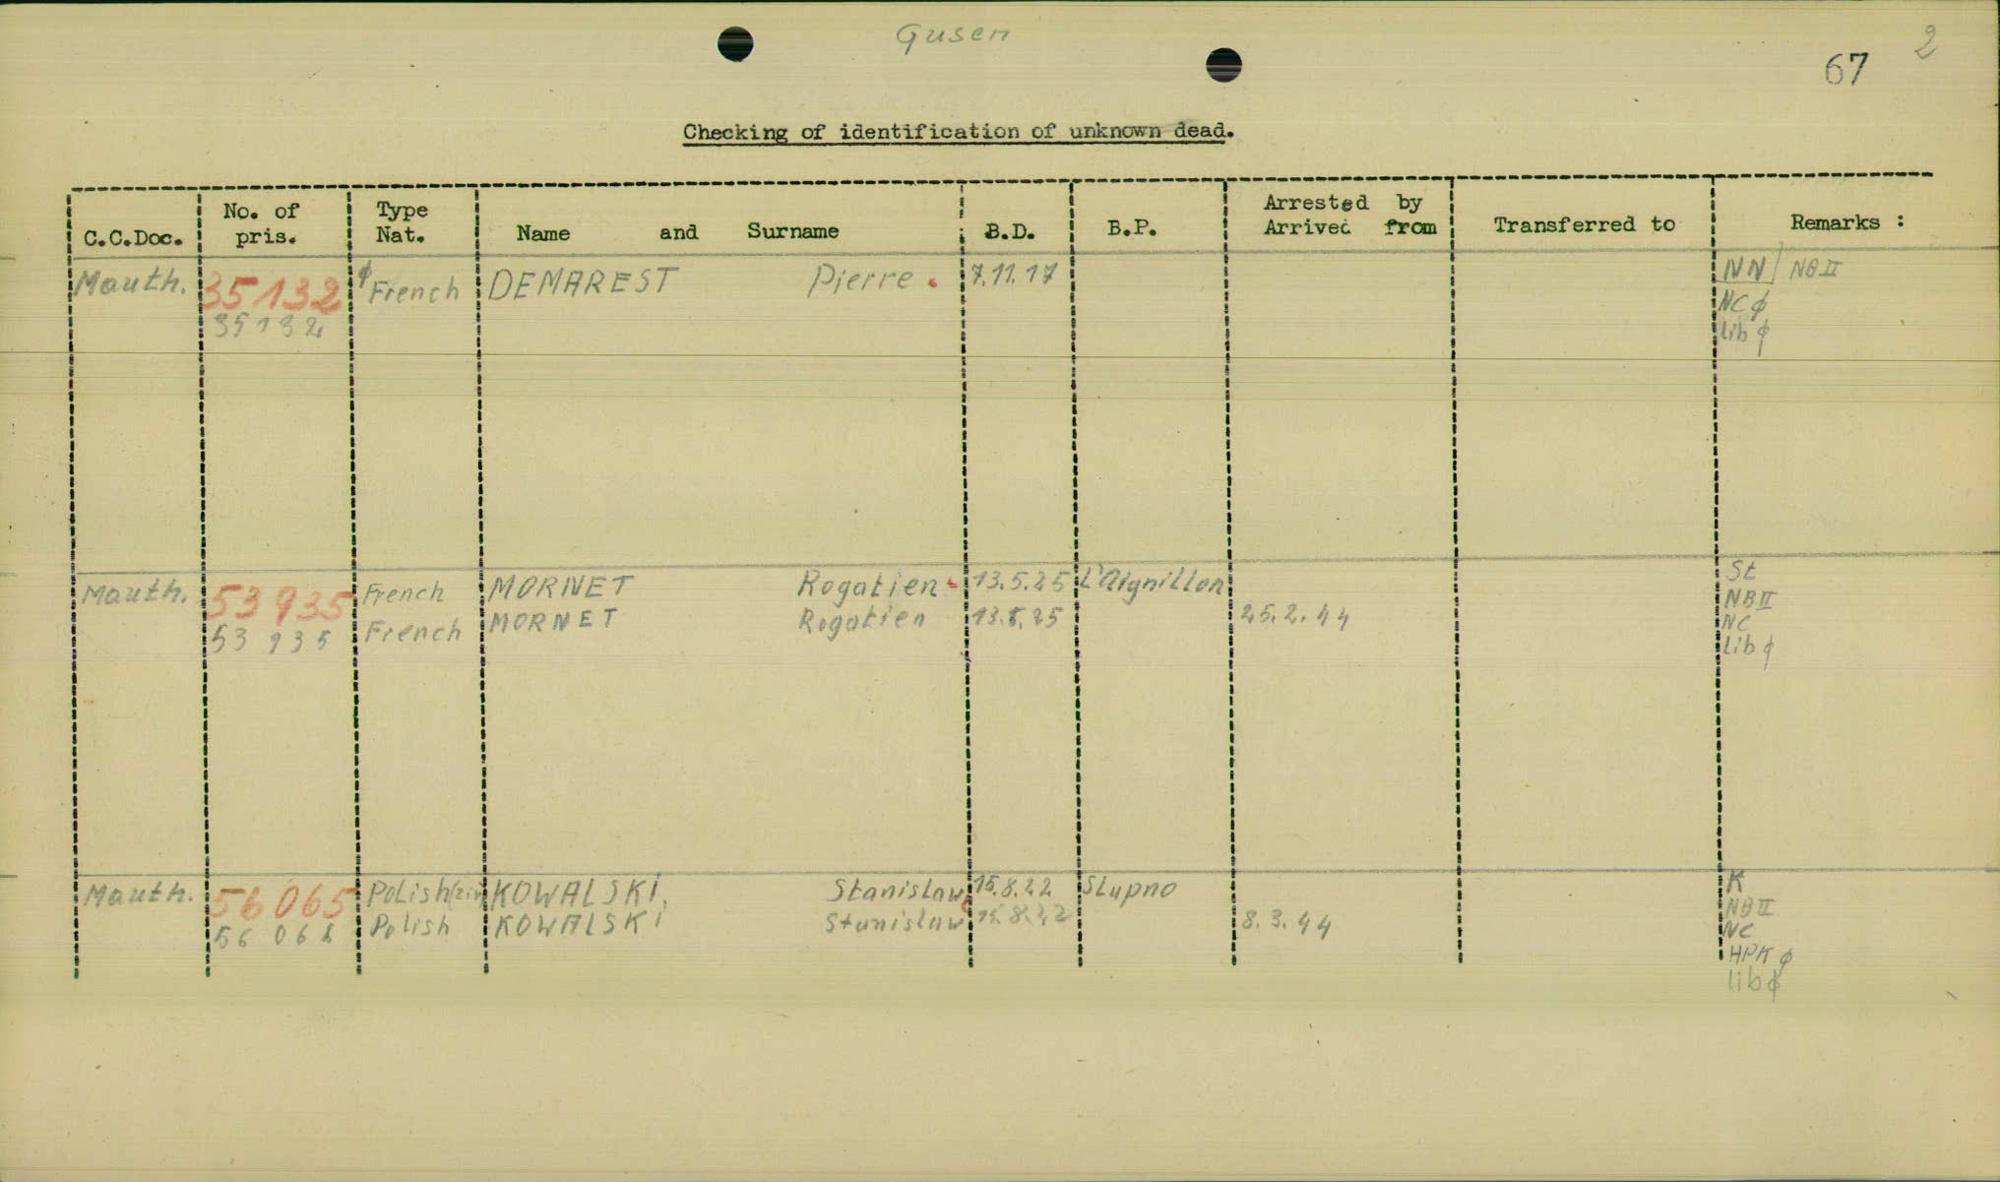 Gusen
2
67
Checking of identification of unknown dead.
C.C.Doc. No. of pris. Type Nat. Name and Surname B.D. B.P. Arrested by Arrived from Transferred to Remarks :
Mauth. 35132 ϕ French DEMAREST Pierre. 7.11.17 NN NB II
35132 NC ϕ
Lib ϕ
Mauth. 53935 French MORNET Rogatien 13.5.25 L'Aignillon St
53 935 French MORNET Rogatien 13.5.25 25.2.44 NB II
NC
Lib ϕ
Mauth. 56065 Polish KOWALSKI, Stanislaw 15.8.22 Slupno K
56 065 Polish KOWALSKI Stanislaw 15.8.22 8.3.44 NB II
NC
HPK ϕ
lib ϕ